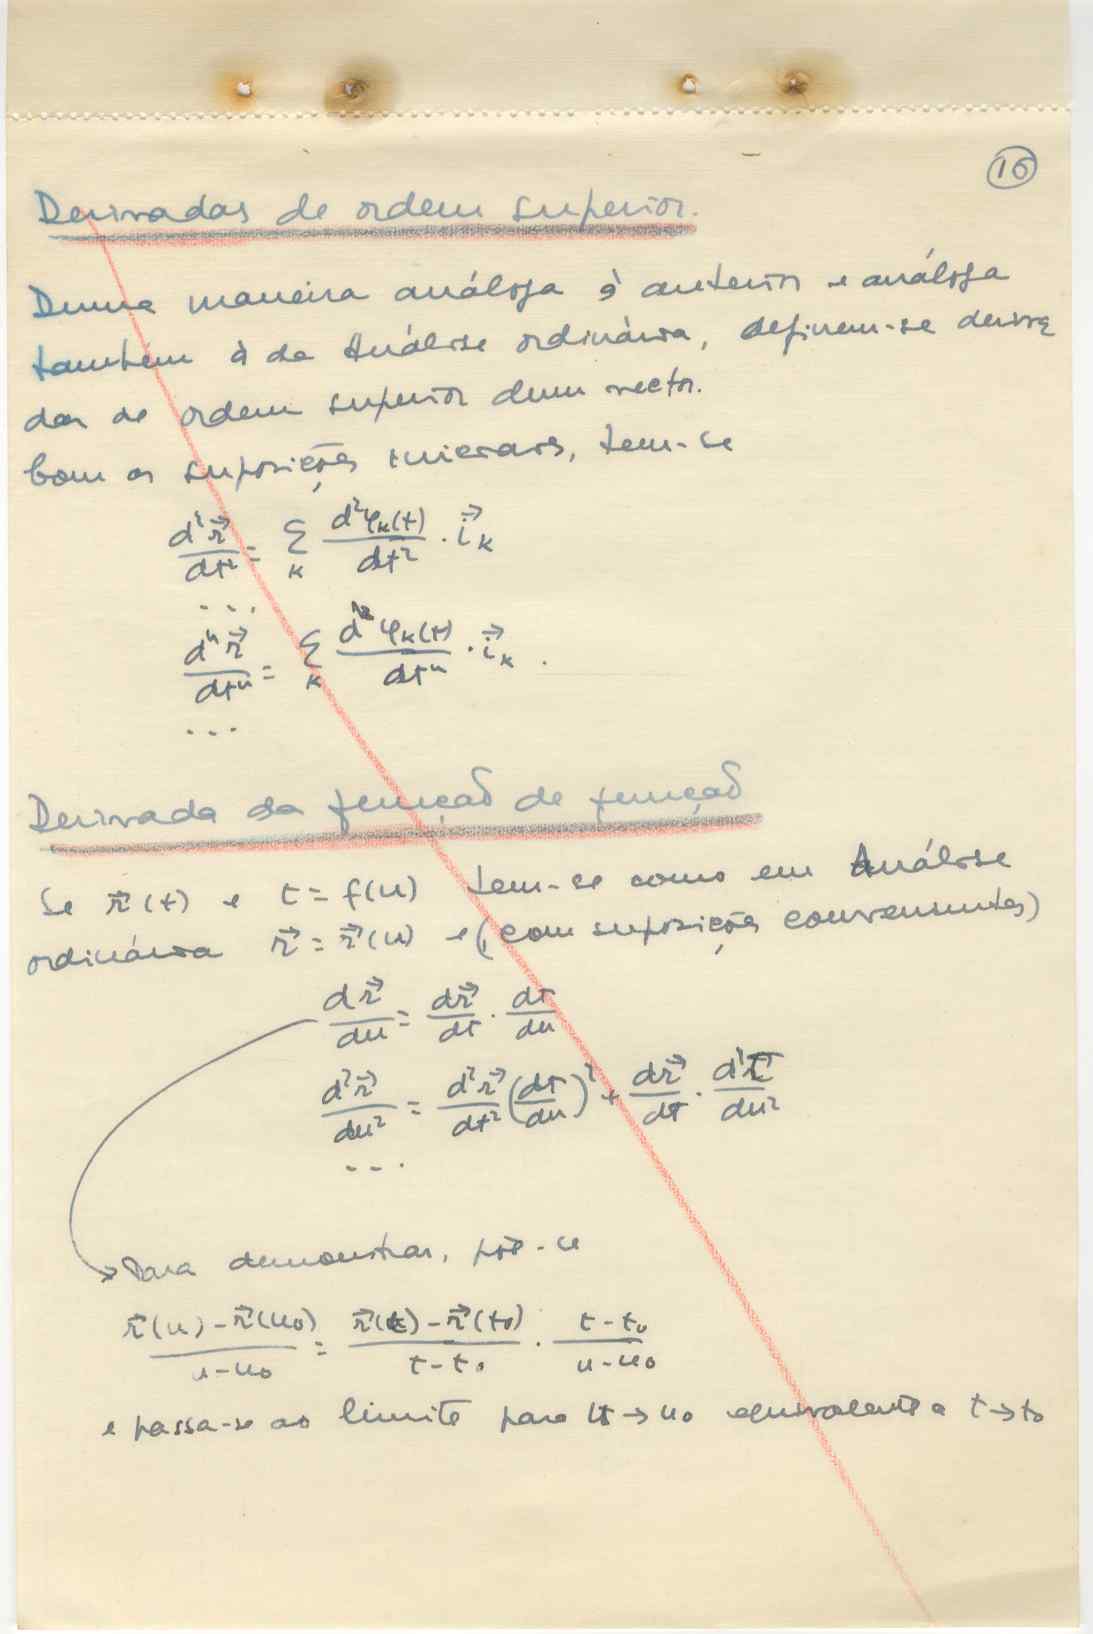 16
Derivadas de ordem superior.
Duma maneira análoga à anterior e análoga
também à da Análise ordinária, definem-se deriva
das de ordem superior dum vector.
Com as suposições iniciais, tem-se
d²r⃗/dt² = Σ_k d²φ_k(t)/dt² · i⃗_k
...
dⁿr⃗/dtⁿ = Σ_k dⁿφ_k(t)/dtⁿ · i⃗_k .
...
Derivada da função de função
Se r⃗(t) e t = f(u) tem-se como em Análise
ordinária r⃗ = r⃗(u) e (com suposições convenientes)
dr⃗/du = dr⃗/dt · dt/du
d²r⃗/du² = d²r⃗/dt² (dt/du)² + dr⃗/dt · d²t/du²
...
Para demonstrar, põe-se
(r⃗(u) - r⃗(u₀))/(u - u₀) = (r⃗(t) - r⃗(t₀))/(t - t₀) · (t - t₀)/(u - u₀)
e passa-se ao limite para u → u₀ equivalente a t → t₀